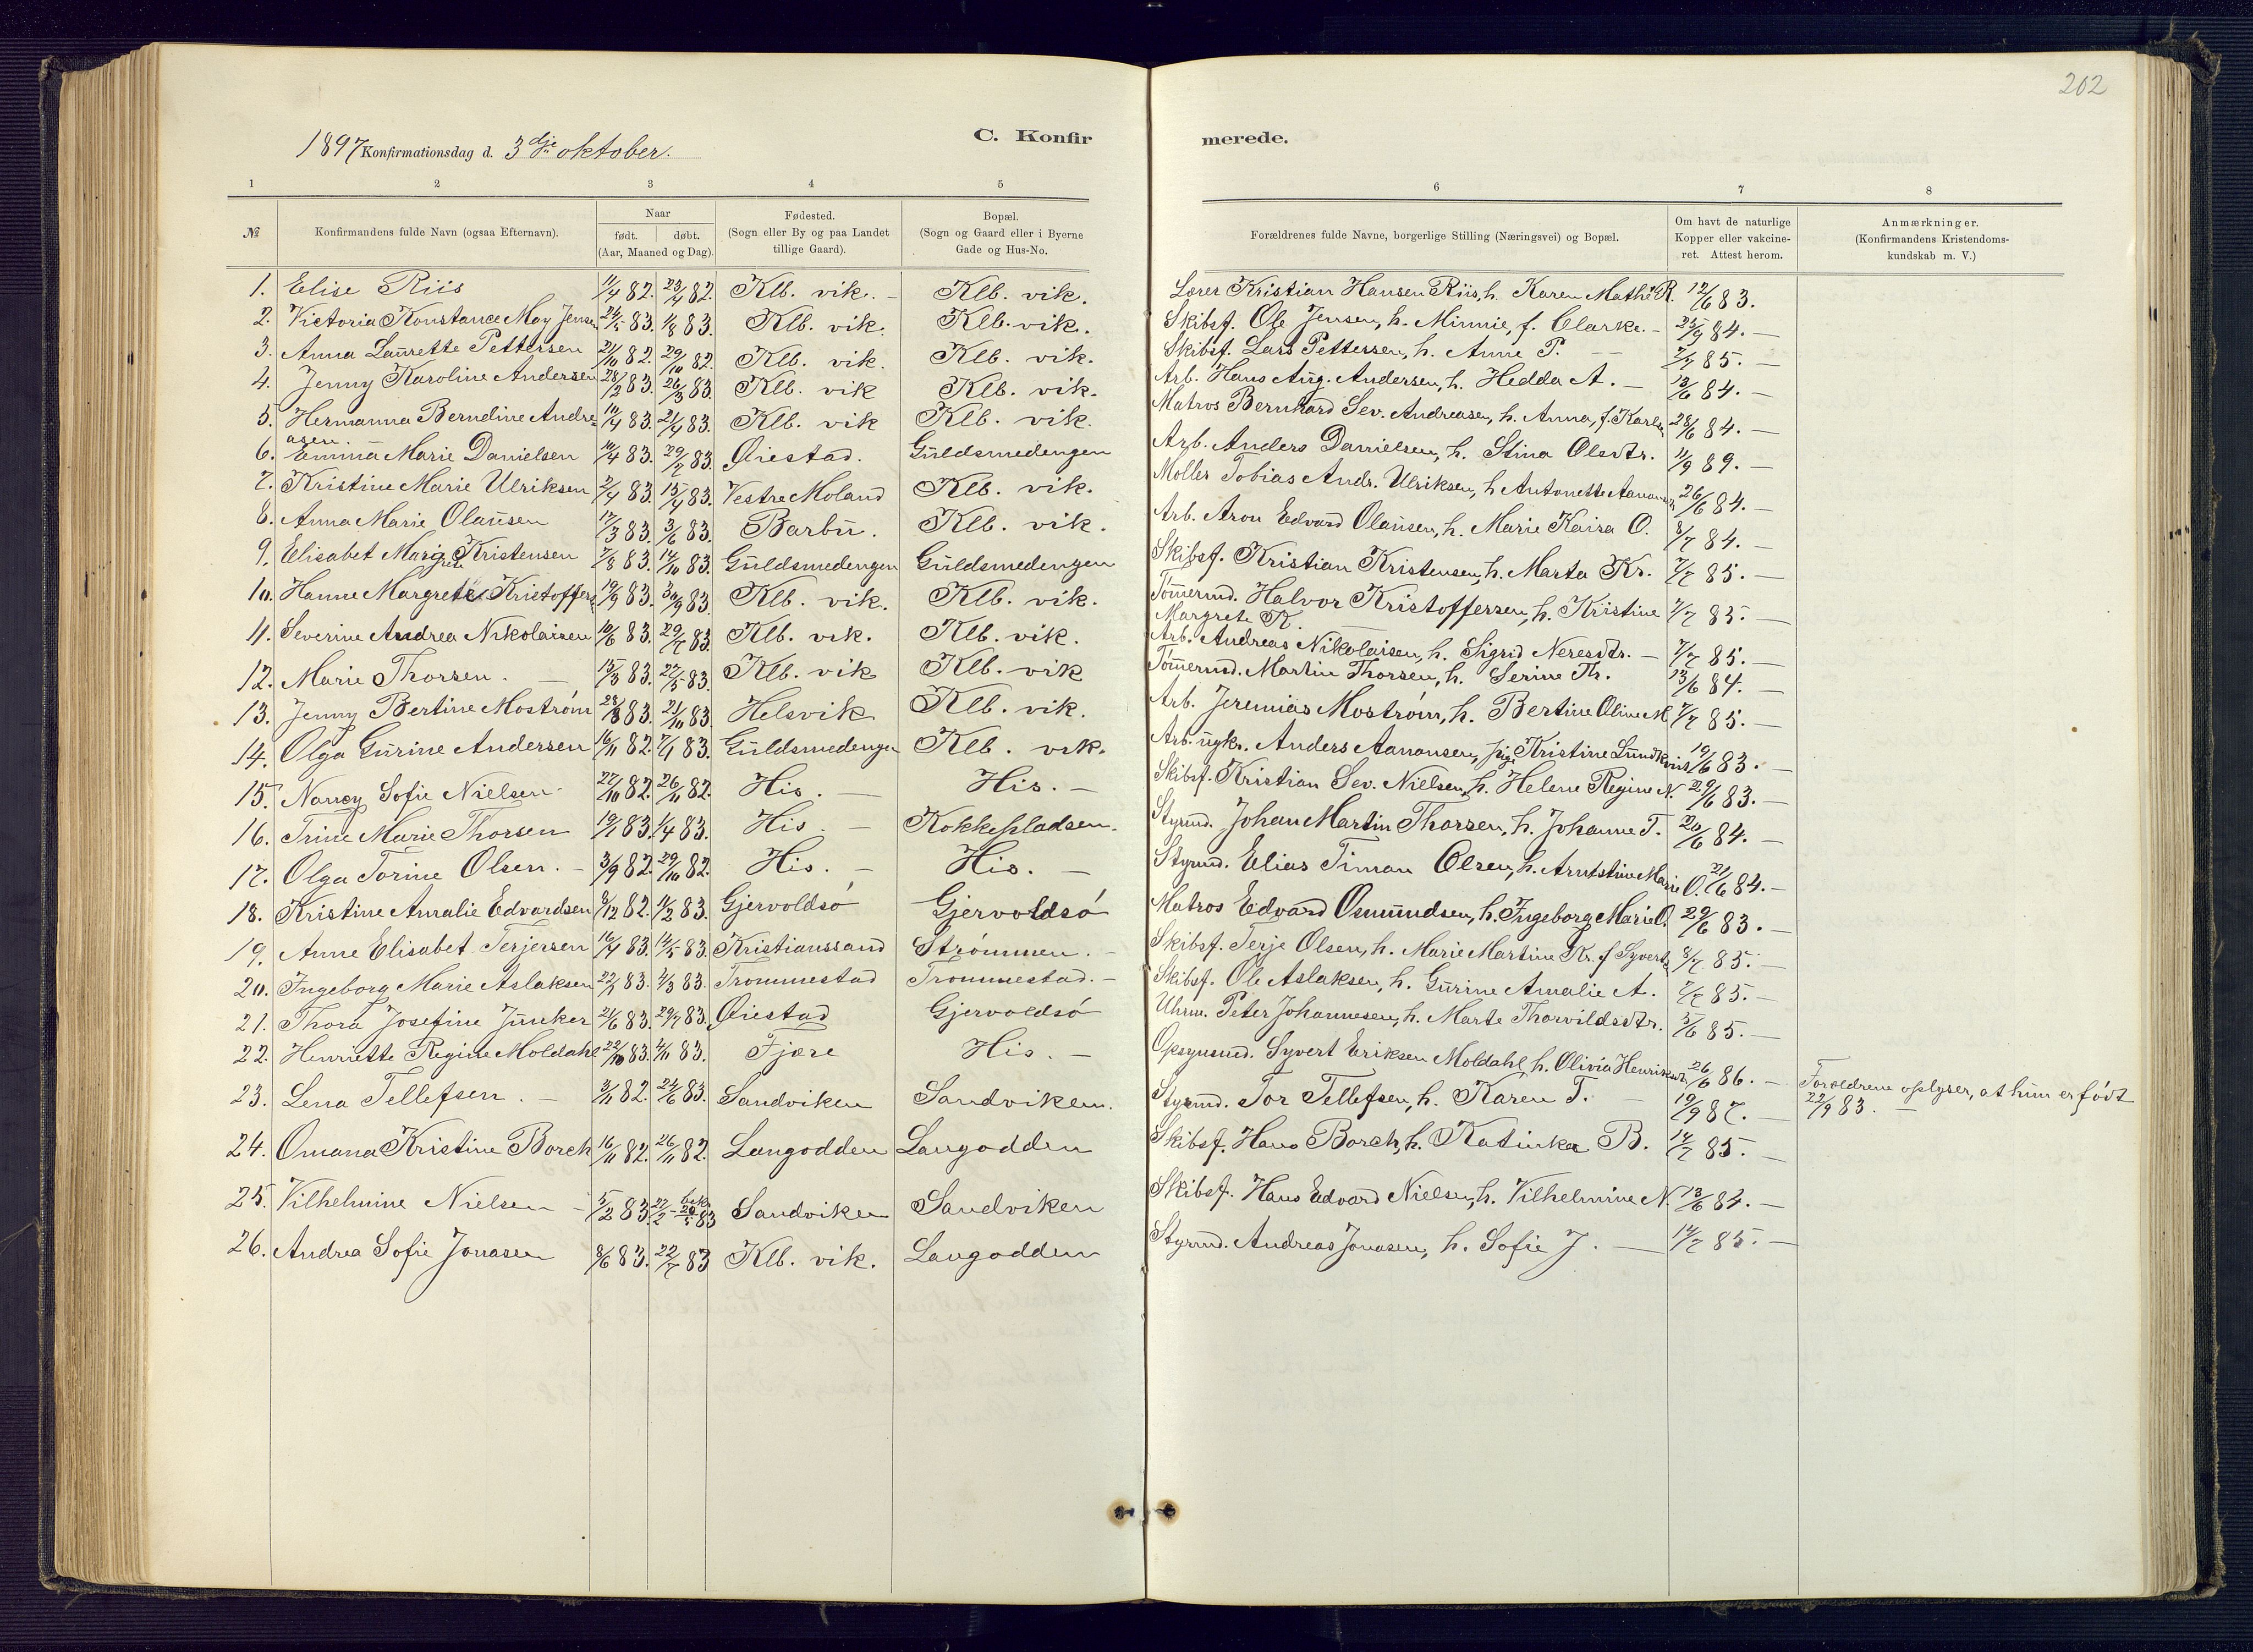 202
C. Konfirmerede.
1897 Konfirmationsdag d. 3dje oktober.
1 2 3 4 5 6 7 8
№ Konfirmandens fulde Navn (ogsaa Efternavn). Naar født. døbt. (Aar, Maaned og Dag). Fødested. (Sogn eller By og paa Landet tillige Gaard). Bopæl. (Sogn og Gaard eller i Byerne Gade og Hus-No. Forældrenes fulde Navne, borgerlige Stilling (Næringsvei) og Bopæl. Om havt de naturlige Kopper eller vakcineret. Attest herom. Anmærkninger. (Konfirmandens Kristendomskundskab m. V.)
1. Elise Riis 11/4 82. 23/4 82. Klb. vik. – Klb. vik. Lærer Kristian Hansen Riis, h. Karen Mathe R. 12/6 83.
2. Victoria Konstance May Jensen 24/5 83. 1/8 83. Klb. vik. Klb. vik. Skibsf. Ole Jensen, h. Minnie, f. Clarke. – 25/9 84. –
3. Anna Laurette Pettersen 21/10 82. 29/10 82. Klb. vik. Klb. vik. Skibsf. Lars Pettersen, h. Anne P. – 7/7 85. –
4. Jenny Karoline Andersen 28/2 83. 26/3 83. Klb. vik Klb. vik. Arb. Hans Aug. Andersen, h. Hedda A. – 13/6 84. –
5. Hermanna Berndine Andreasen. 10/4 83. 21/4 83. Klb. vik Klb. vik. Matros Bernhard Sev. Andreasen, h. Anna, f. Karlsen 28/6 84. –
6. Emma Marie Danielsen 10/4 83. 29/7 83. Øiestad. Guldsmedengen Arb. Anders Danielsen, h. Stina Olsdtr. 11/9 89. –
7. Kristine Marie Ulriksen 2/4 83. 15/4 83. Vestre Moland Klb. vik. Møller Tobias Andr. Ulriksen, h Antonette Aanonsen 26/6 84. –
8. Anna Marie Olausen 17/3 83. 3/6 83. Barbu. Klb. vik. Arb. Aron Edvard Olausen, h. Marie Kaisa O. 8/7 84. –
9. Elisabet Margrete Kristensen 7/8 83. 14/10 83. Guldsmedengen Guldsmedengen Skibsf. Kristian Kristensen, h. Marta Kr. 7/7 85. –
10. Hanne Margrete Kristoffers 19/9 83. 30/9 83. Klb. vik. Klb. vik. Tømermd. Halvor Kristoffersen, h. Kristine Margrete K. 7/7 85. –
11. Severine Andrea Nikolaisen 10/6 83. 29/7 83. Klb. vik. Klb. vik. Arb. Andreas Nikolaisen, h. Sigrid Neresdtr. – 7/7 85. –
12. Marie Thorsen. – 15/3 83. 27/5 83. Klb. vik Klb. vik Tømermd. Martin Thorsen, h. Serine Th. 13/6 84. –
13. Jenny Bertine Mostrøm 28/8 83. 21/10 83. Helsvik Klb. vik. Arb. Jeremias Mostrøm, h. Bertine Oline M. 7/7 85. –
14. Olga Gurine Andersen 16/11 82. 7/1 83. Guldsmedengen Klb. vik. Arb. ugkr. Anders Aanonsen, pige Kristine Lundkvist 19/6 83. –
15. Nancy Sofie Nielsen 27/10 82. 26/11 82. His. – His. – Skibsf. Kristian Sev. Nielsen, h. Helene Regine N. 29/6 83. –
16. Trine Marie Thorsen 19/1 83. 1/4 83. His. – Kokkepladsen. Styrmd. Johan Martin Thorsen, h. Johanne T. 20/6 84. –
17. Olga Torine Olsen. – 3/9 82. 29/10 82. His. – His. – Styrmd. Elias Timan Olsen, h. Arntstine Marie O. 21/6 84. –
18. Kristine Amalie Edvardsen 8/12 82. 11/2 83. Gjervoldsø Gjervoldsø Matros Edvard Osmundsen, h. Ingeborg Marie O. 29/6 83. –
19. Anne Elisabet Terjersen 16/4 83. 14/5 83. Kristianssand Strømmen. – Skibsf. Terje Olsen, h. Marie Martine Kr. f Syverts 8/7 85. –
20. Ingeborg Marie Aslaksen 22/1 83. 4/3 83. Trommestad Trommestad. – Skibsf. Ole Aslaksen, h. Gurine Amalie A. 7/7 85. –
21. Thora Josefine Junker 21/6 83. 29/7 83. Øiestad Gjervoldsø Uhrm. Peter Johannesen, h. Marte Thorvildsdtr. 5/6 85. –
22. Henriette Regine Moldahl 22/10 83. 4/11 83. Fjære His. – Opsynsmd. Syvert Eriksen Moldahl, h. Olivia Henriksdtr. 26/6 86. –
23. Lena Tellefsen. – 3/11 82. 24/6 83. Sandviken Sandviken. Styrmd. Tor Tellefsen, h. Karen T. – 19/9 87. – Foreldrene oplyser, at hun er født 22/9 83. –
24. Omana Kristine Borch 16/11 82. 26/11 82. Langodden Langodden Skibsf. Hans Borch, h. Katinka B. 14/7 85. –
25. Vilhelmine Nielsen – 5/2 83. 27/2 – bek. 20/5 83 Sandviken Sandviken Skibsf. Hans Edvard Nielsen, h. Vilhelmine N. 13/6 84. –
26. Andrea Sofie Jonasen 8/6 83. 22/7 83 Klb. vik. Langodden Styrmd. Andreas Jonasen, h. Sofie J. – 14/7 85. –